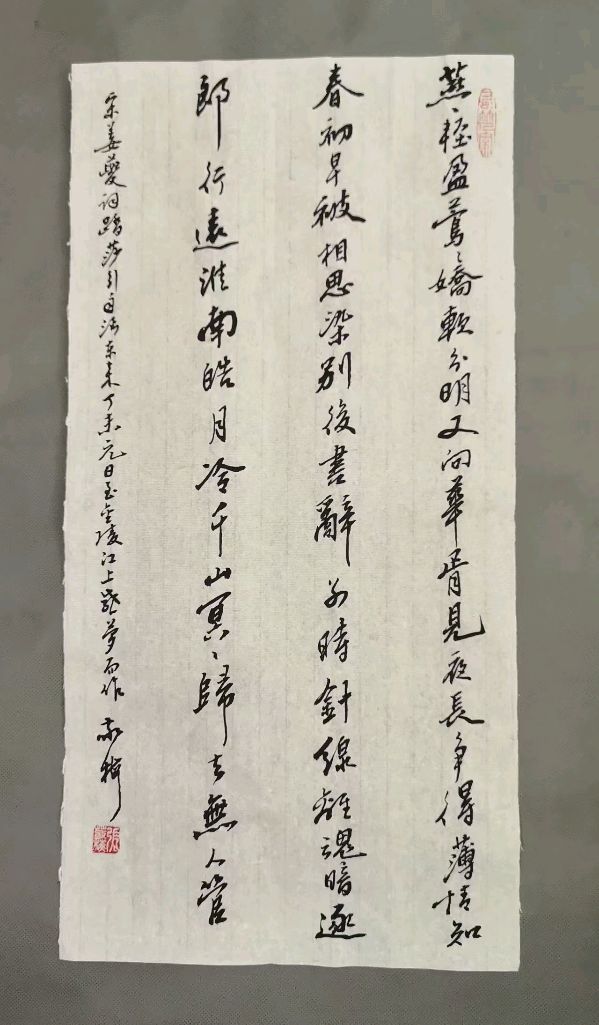 燕〻輕盈鶯〻嬌軟分明又向華胥見夜長爭得薄情知
春初早被相思染別後書辭別時針線離魂暗逐
郎行遠淮南皓月冷千山冥〻歸去無人管
宋姜夔詞踏莎行自沔東來丁未元日至金陵江上感夢而作